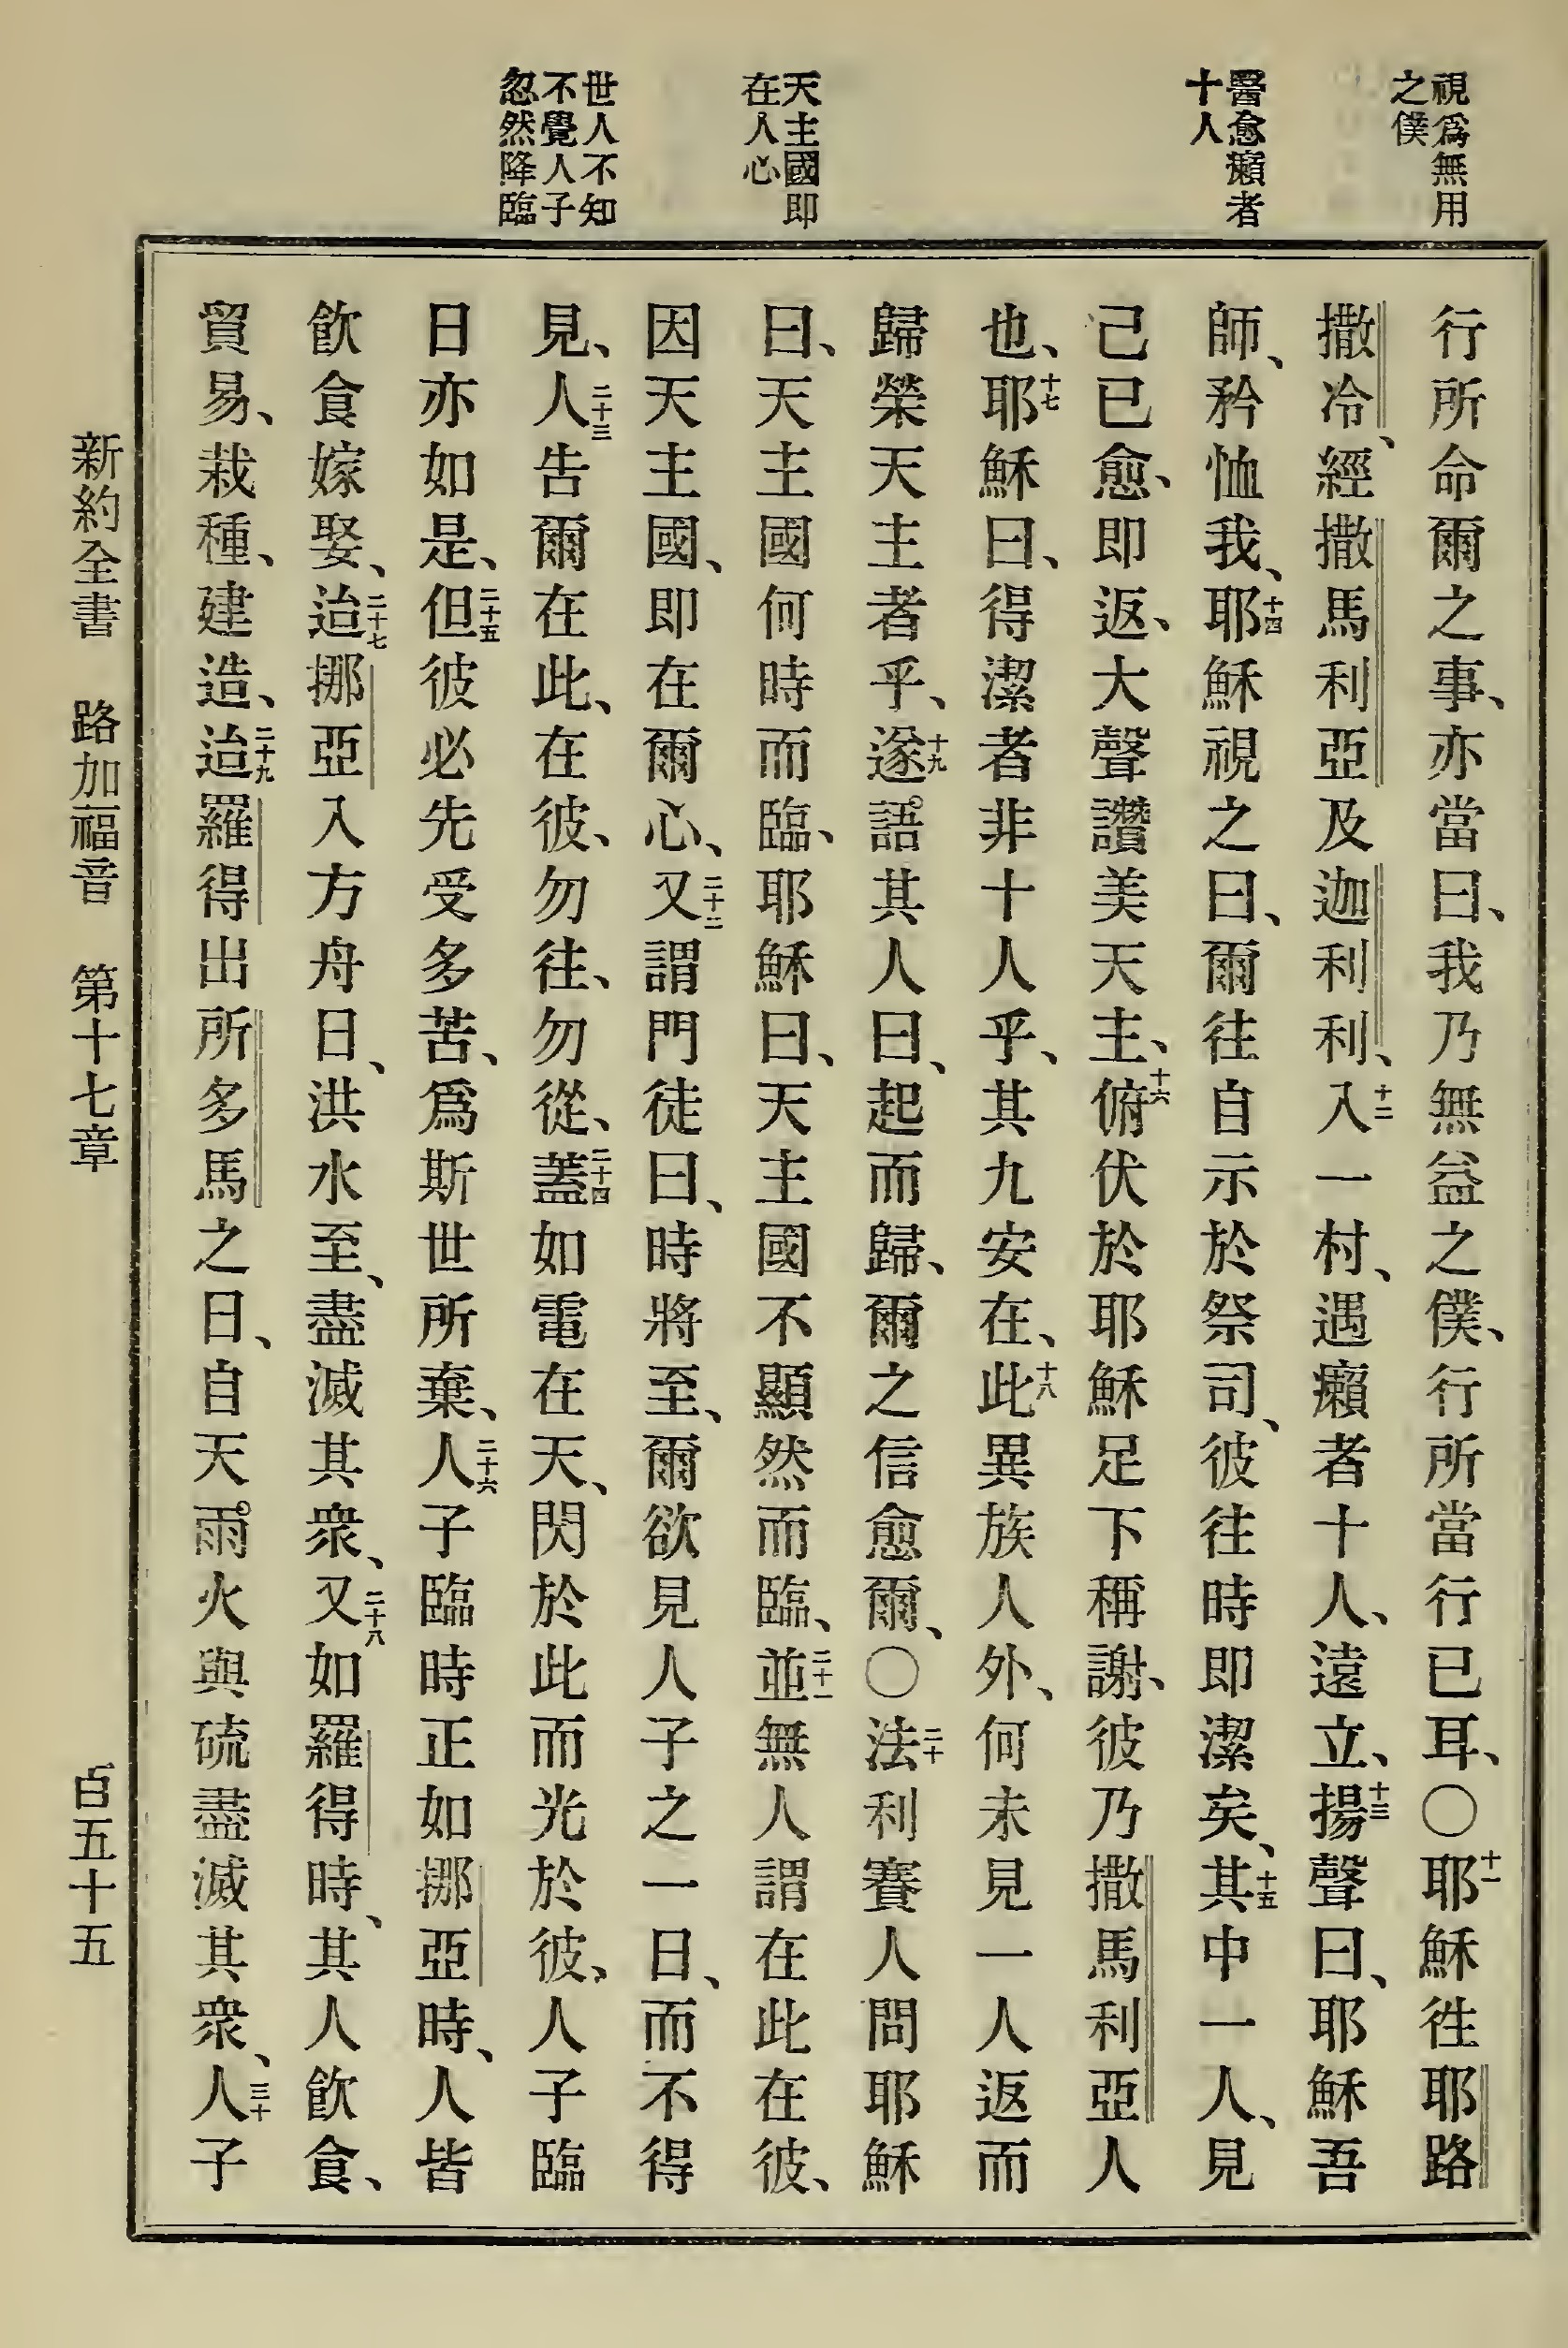 視爲無用
之僕
醫愈癩者
十人
天主國即
在人心
世人不知
不覺人子
忽然降臨
行所命爾之事、亦當曰、我乃無益之僕、行所當行已耳、〇十一耶穌徃耶路
撒冷、經撒馬利亞及迦利利、十二入一村、遇癩者十人、遠立、十三揚聲曰、耶穌吾
師、矜恤我、十四耶穌視之曰、爾往自示於祭司、彼往時即潔矣、十五其中一人、見
己已愈、即返、大聲讚美天主、十六俯伏於耶穌足下稱謝、彼乃撒馬利亞人
也、十七耶穌曰、得潔者非十人乎、其九安在、十八此異族人外、何未見一人返而
歸榮天主者乎、十九遂語其人曰、起而歸、爾之信愈爾、〇二十法利賽人問耶穌
曰、天主國何時而臨、耶穌曰、天主國不顯然而臨、二十一並無人謂在此在彼、
因天主國、即在爾心、二十二又謂門徒曰、時將至、爾欲見人子之一日、而不得
見、二十三人告爾在此、在彼、勿往、勿從、二十四蓋如電在天、閃於此而光於彼、人子臨
日亦如是、二十五但彼必先受多苦、爲斯世所棄、二十六人子臨時正如挪亞時、人皆
飲食嫁娶、二十七迨挪亞入方舟日、洪水至、盡滅其衆、二十八又如羅得時、其人飲食、
貿易、栽種、建造、二十九迨羅得出所多馬之日、自天雨火與硫盡滅其衆、三十人子
新約全書 路加福音 第十七章 百五十五